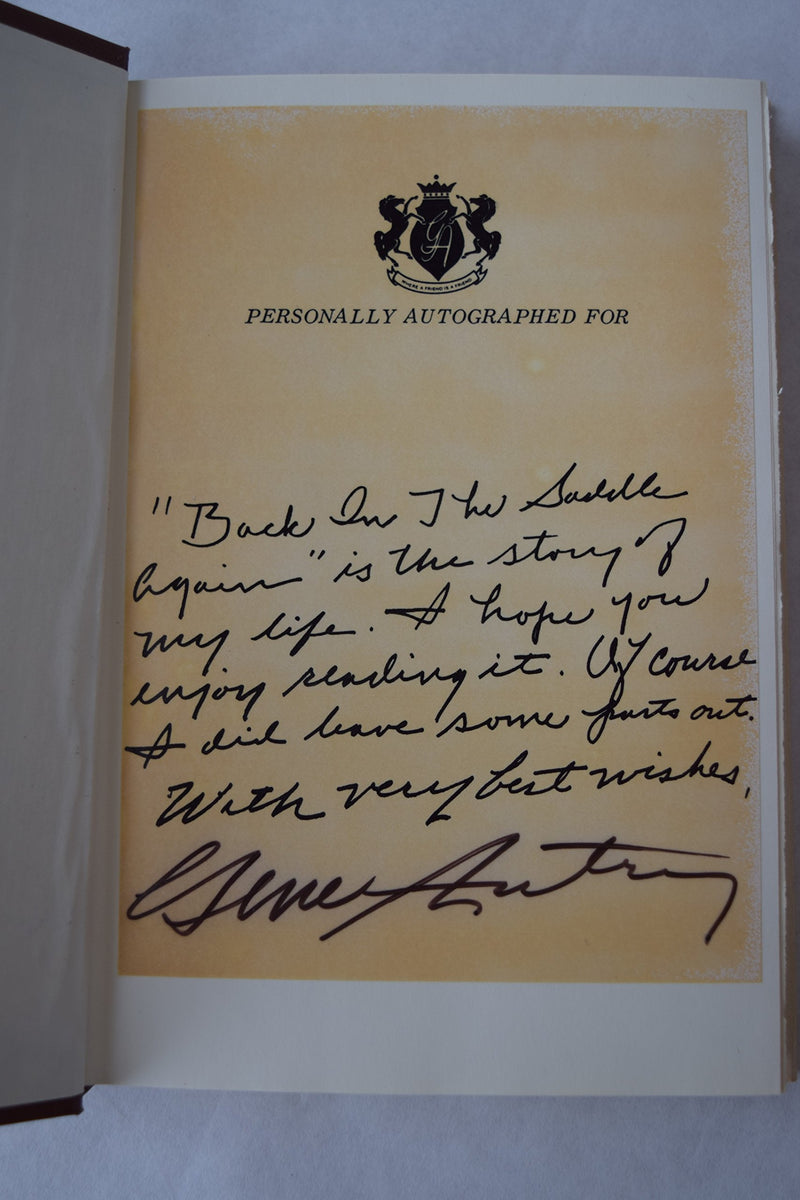 GA
WHERE A FRIEND IS A FRIEND
PERSONALLY AUTOGRAPHED FOR
"Back In The Saddle
Again" is the story of
my life. I hope you
enjoy reading it. Of course
I did leave some parts out.
With very best wishes,
Gene Autry